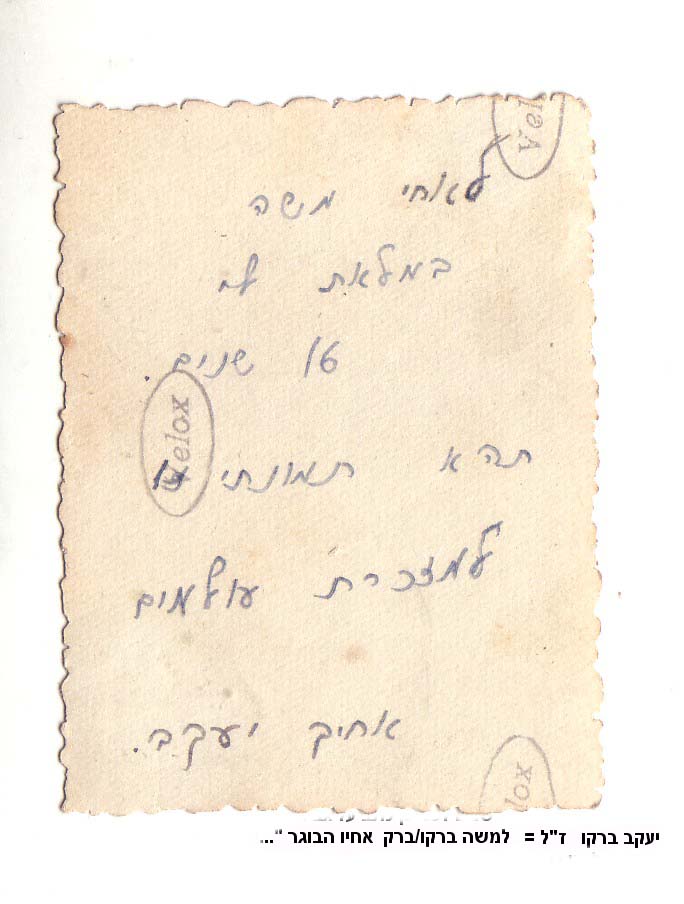 Velox
לאחי משה
במלאת לי
16 שנים.
Velox
תהא תמונתי זו
למזכרת עולמים
אחיך יעקב.
lox
יעקב ברקו ז"ל = למשה ברקו/ברק אחיו הבוגר "...